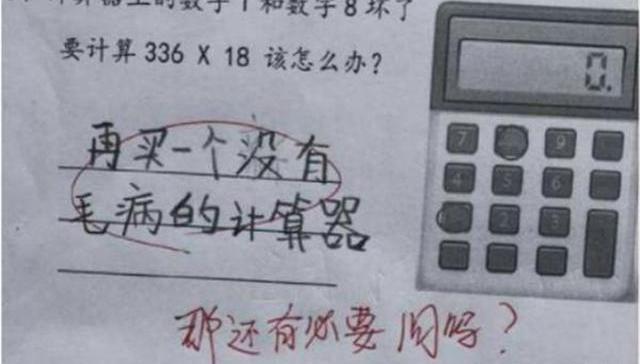 计算器上的数字1和数字8坏了
要计算 336 X 18 该怎么办?
再买一个没有
毛病的计算器
那还有必要问吗?
0.
7 9
4 5 6
2 3